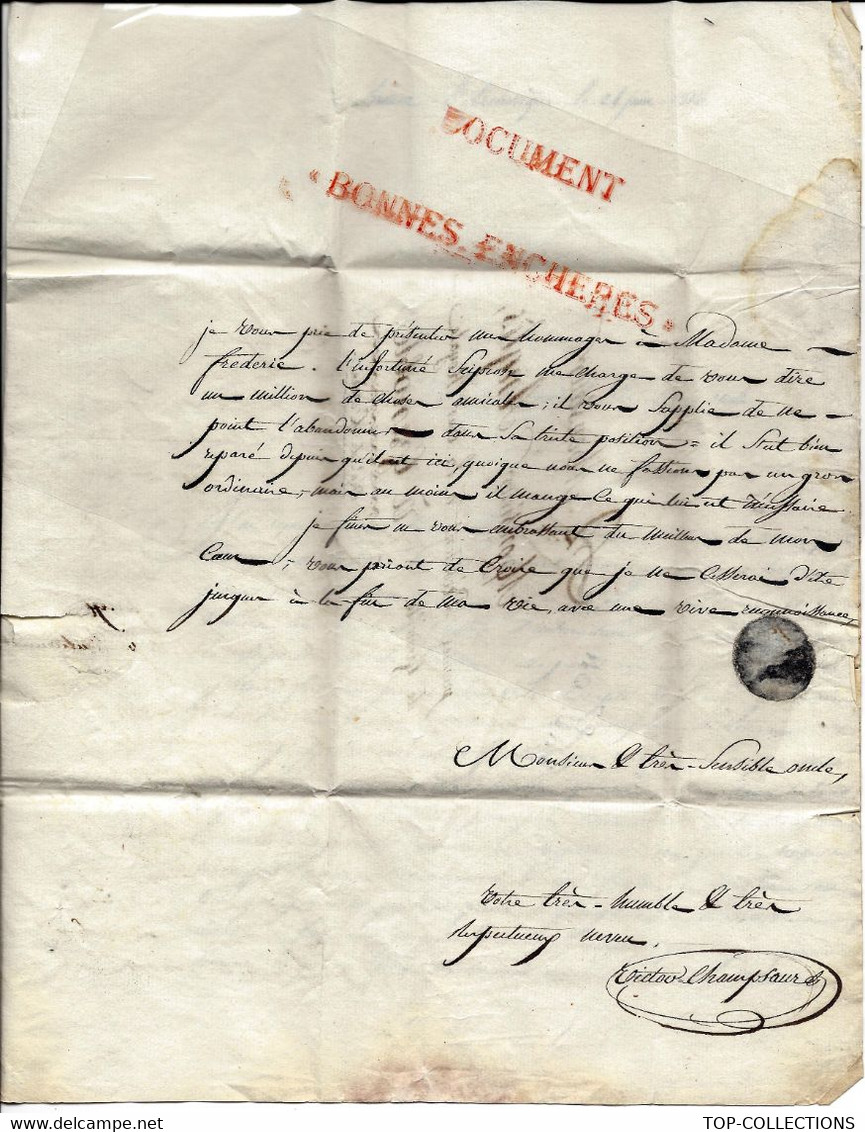 DOCUMENT
" BONNES ENCHERES "
je vous prie de présenter mes hommages à Madame
fréderic. l'infortuné Scipion me charge de vous dire
un million de choses amicales; il vous supplie de ne
point l'abandonner dans sa triste position = il s'est bien
réparé depuis qu'il est ici, quoique nous ne fassions pas un gros
ordinaire, mais au moins il mange ce qui lui est nécessaire.
je finis en vous embrassant du meilleur de mon
Cœur, vous priant de Croire que je ne Cesserai d'être
jusques à la fin de ma vie, avec une vive reconnoissance,
Monsieur & très-Sensible oncle,
Votre très-humble & très
respectueux neveu.
Victor Champsaur
TOP-COLLECTIONS